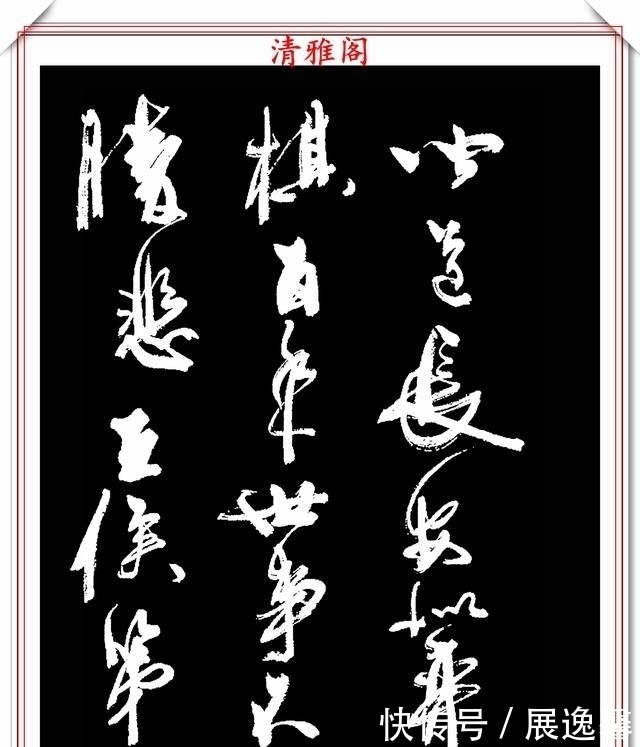 清雅阁
聞道長安似弈
棋百年世事不
勝悲王侯第
快传号 / 展逸